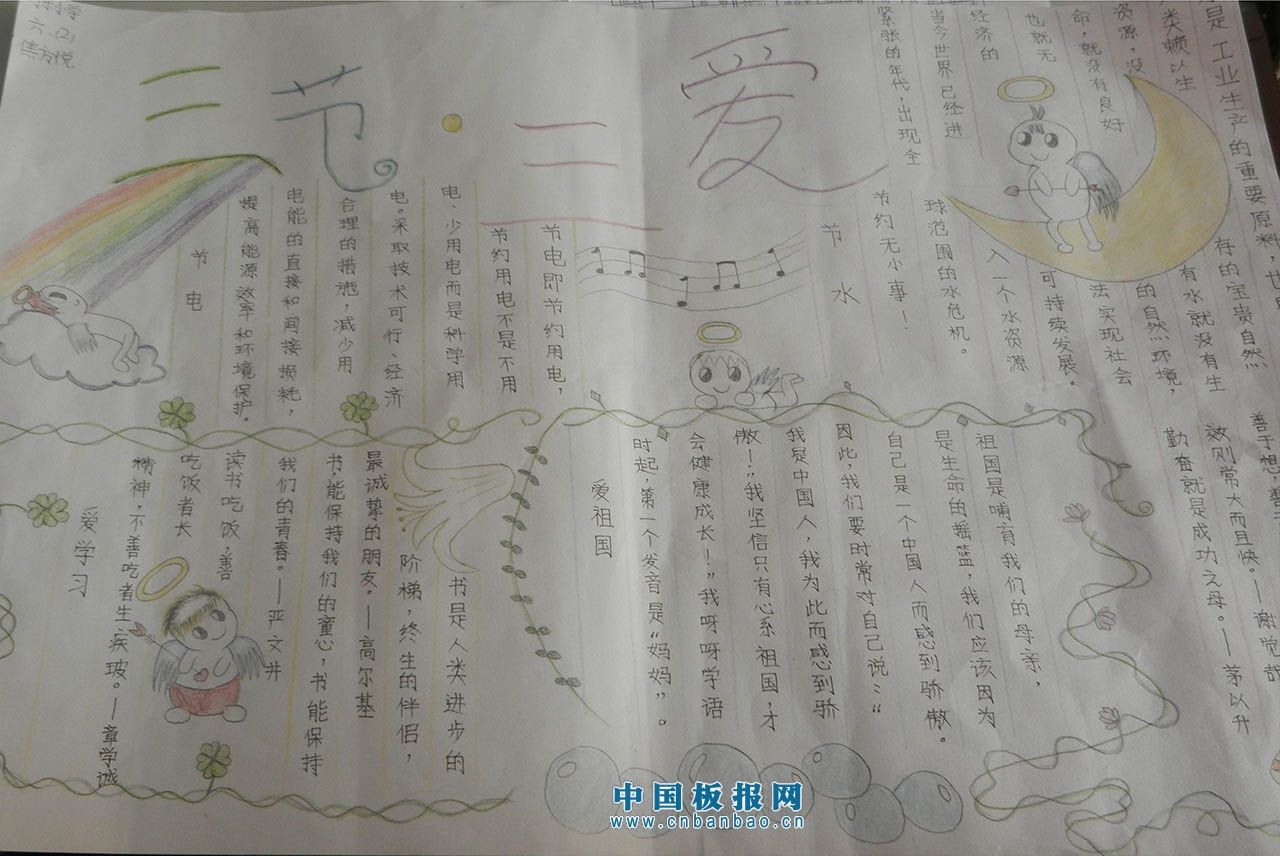 小学
六.(2)
焦方悦
三节·三爱
节电
节电即节约用电，
节约用电不是不用
电、少用电而是科学用
电。采取技术可行、经济
合理的措施，减少用
电能的直接和间接损耗，
提高能源效率和环境保护。
节水
是工业生产的重要原料，世
类赖以生存的宝贵自然
资源，没有水就没有生
命，就没有良好的自然环境，
也就无法实现社会
经济的可持续发展。
当今世界已经进入一个水资源
紧张的年代，出现全球范围的水危机。
节约无小事！
爱学习
善于想，善
效则常大而且快。—谢觉哉
勤奋就是成功之母。—茅以升
书是人类进步的
阶梯，终生的伴侣，
最诚挚的朋友。—高尔基
书，能保持我们的童心，书能保持
我们的青春。—严文井
读书吃饭，善
吃饭者长
精神，不善吃者生疾玻。—章学诚
爱祖国
祖国是哺育我们的母亲，
是生命的摇篮，我们应该因为
自己是一个中国人而感到骄傲。
因此，我们要时常对自己说：“
我是中国人，我为此而感到骄
傲！”我坚信只有心系祖国，才
会健康成长！”我呀呀学语
时起，第一个发音是“妈妈”。
中国板报网
www.cnbanbao.cn